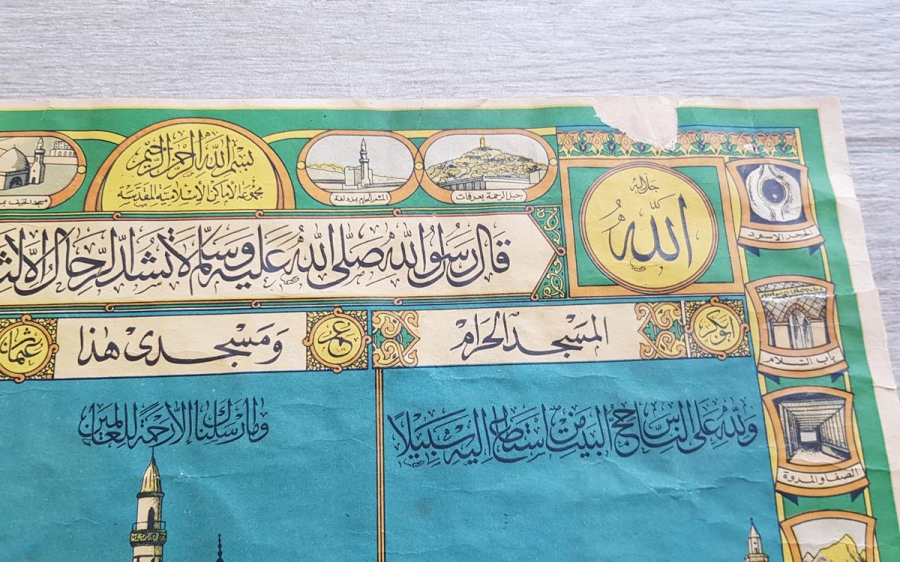 بسم الله الرحمن الرحيم
مجموعة الاماكن الاسلامية المقدسة
مسجد الخيف
المشعر الحرام بمزدلفة
جبل الرحمة بعرفات
جل جلاله
الله
الحجر الاسود
قال رسول الله صلى الله عليه وسلم لا تشد الرحال الا
باب السلام
ابو بكر
المسجد الحرام
عمر
ومسجدى هذا
عثمان
ولله على الناس حج البيت من استطاع اليه سبيلا
وما ارسلناك الا رحمة للعالمين
الصفا والمروة